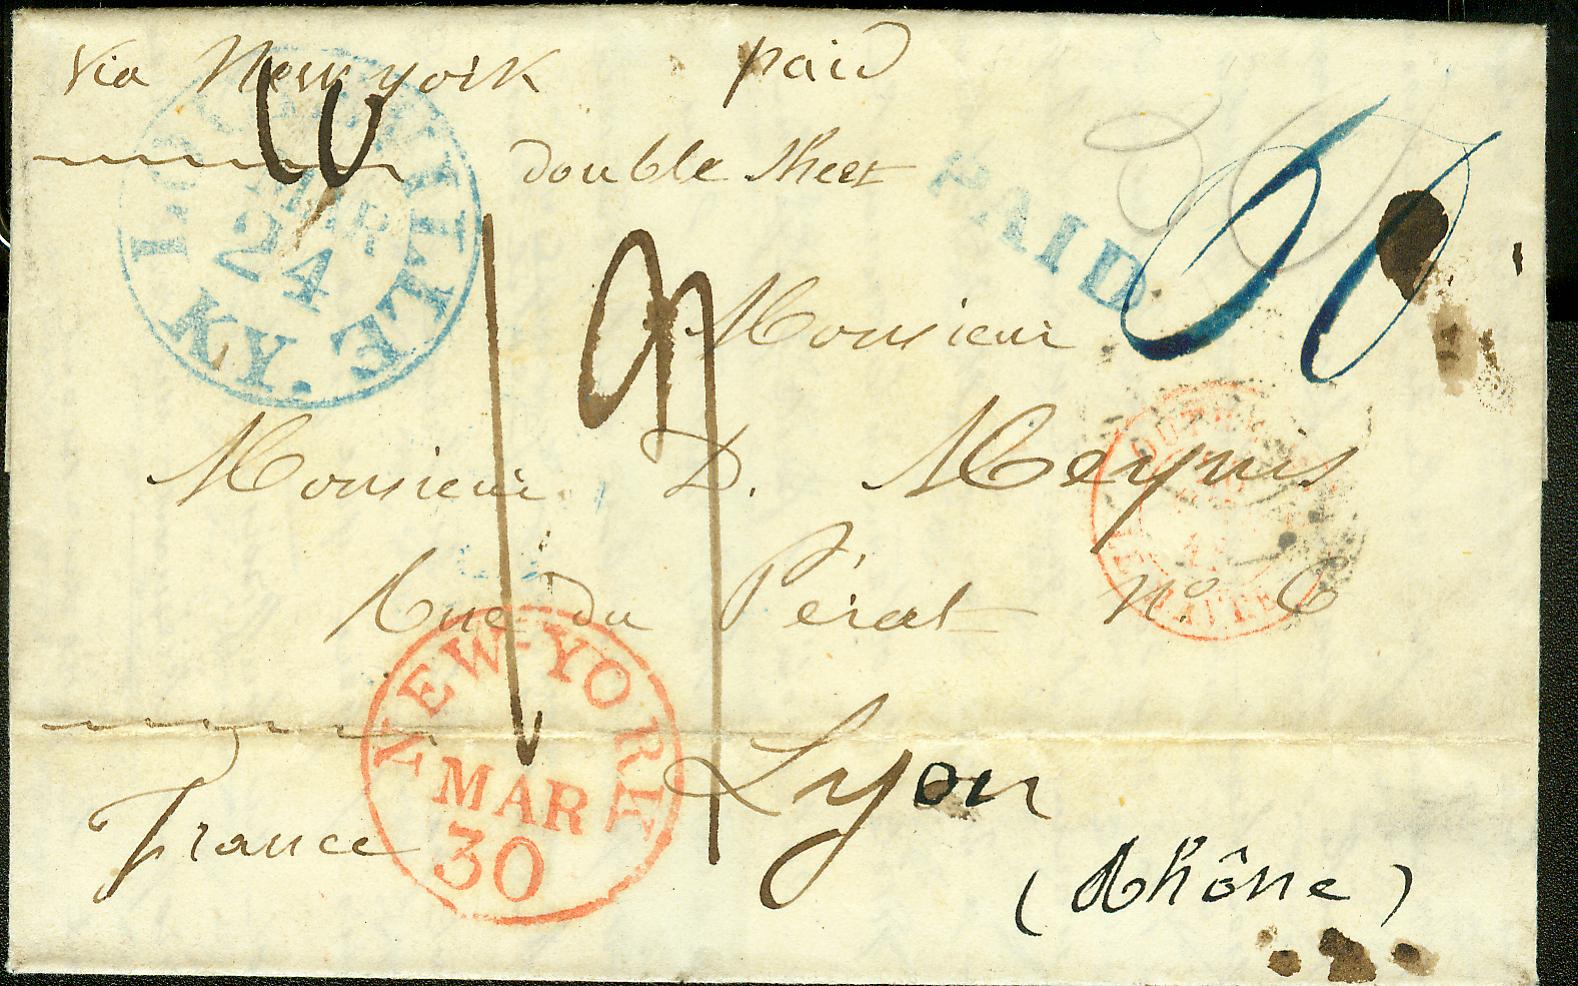 via New york paid
double sheet
LOUISVILLE KY.
MAR
24
PAID
50
10
19
Monsieur
Monsieur D. Meynis
Rue du Pérat No 6
Lyon
(Rhône)
France
NEW-YORK
MAR
30
OUTRE
LE HAVRE